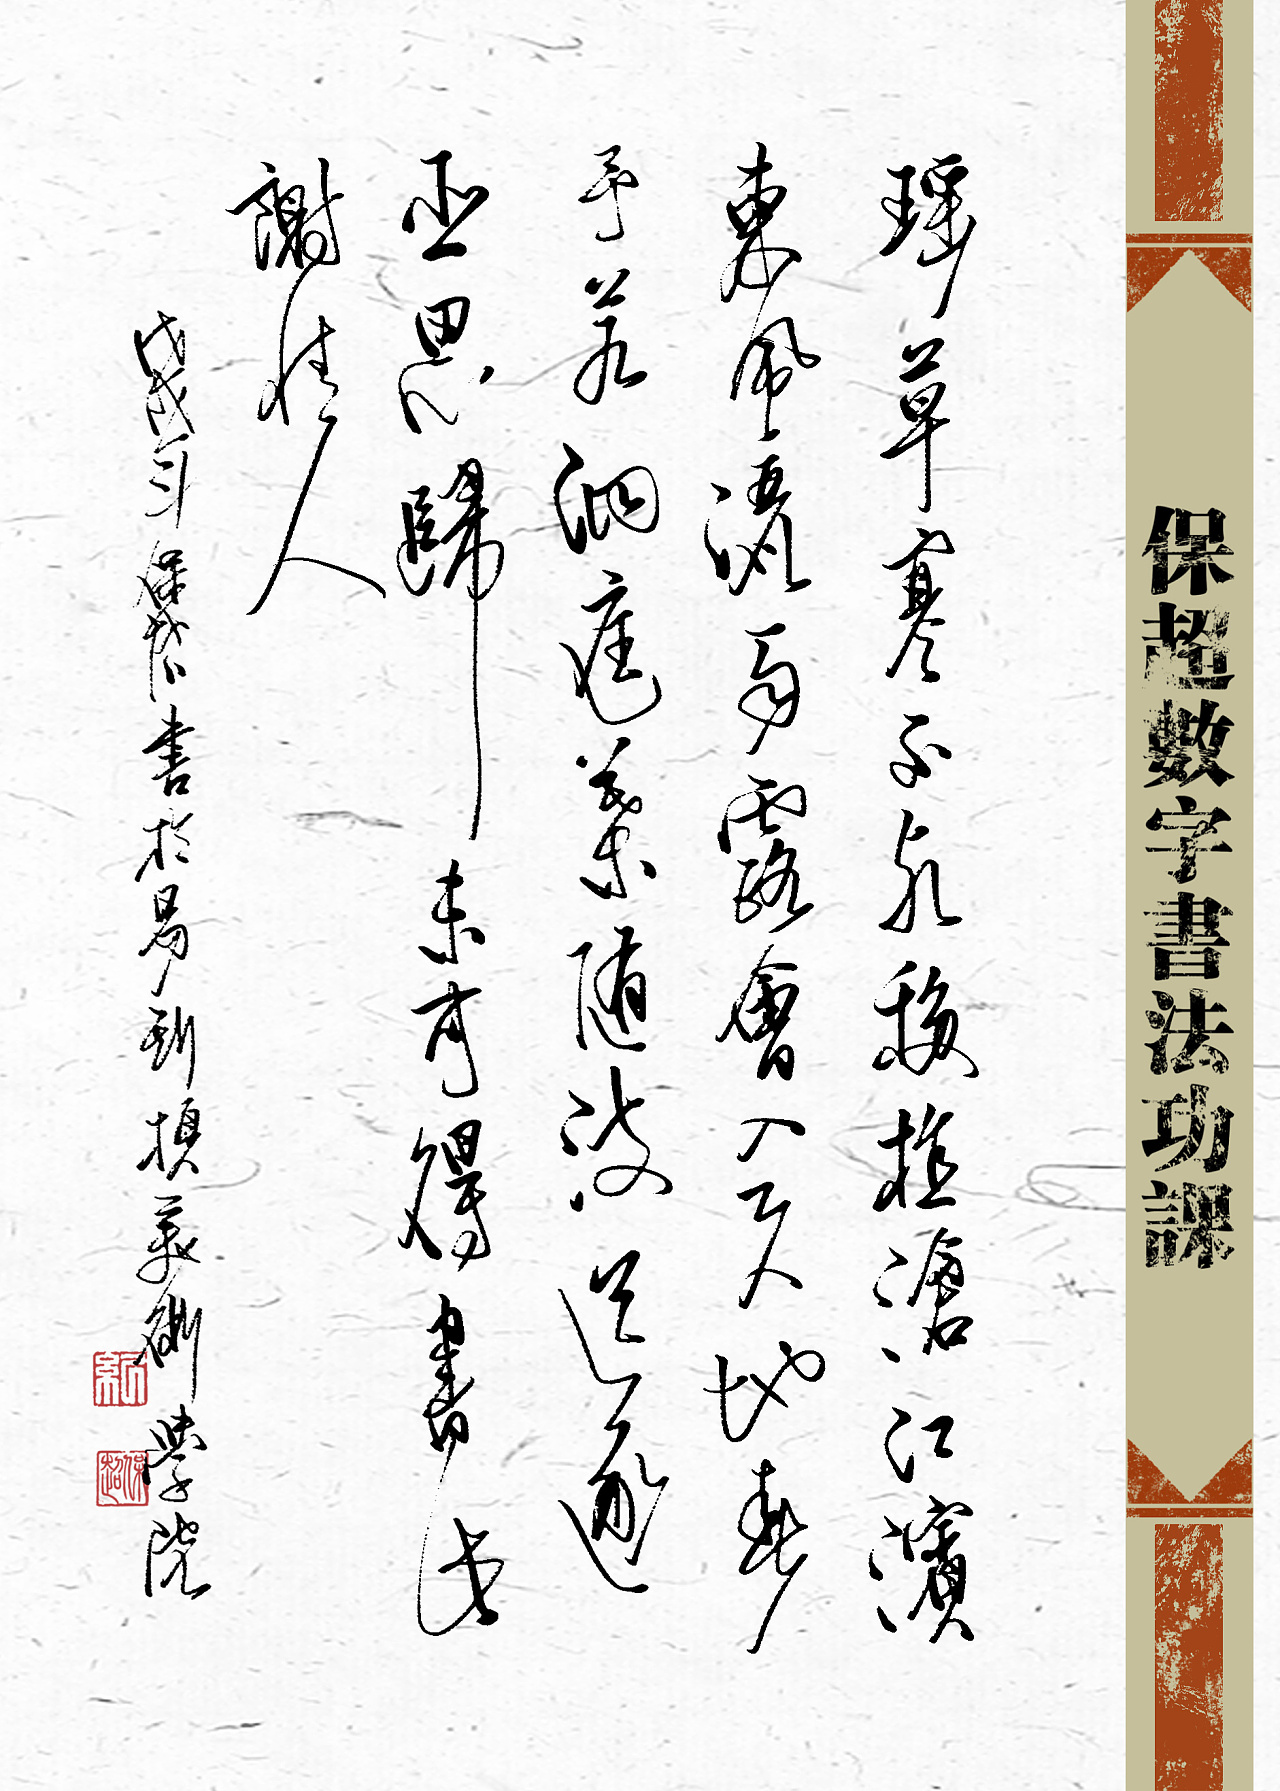 保超數字書法功課
瑶草寒不死移植滄江濱
東風灑雨露會入天地春
予若洞庭葉随波送逐
臣思歸未可得書此
謝情人
戊戌年保超書於美術學院
保超